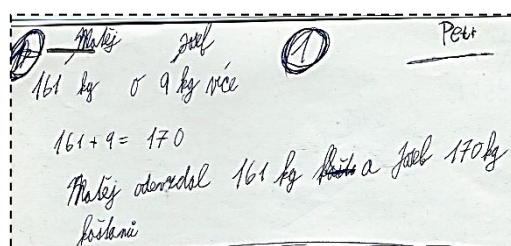 Matěj Josef 1 Petr
161 kg o 9 kg více
161 + 9 = 170
Matěj odevzdal 161 kg a Josef 170 kg
kaštanů